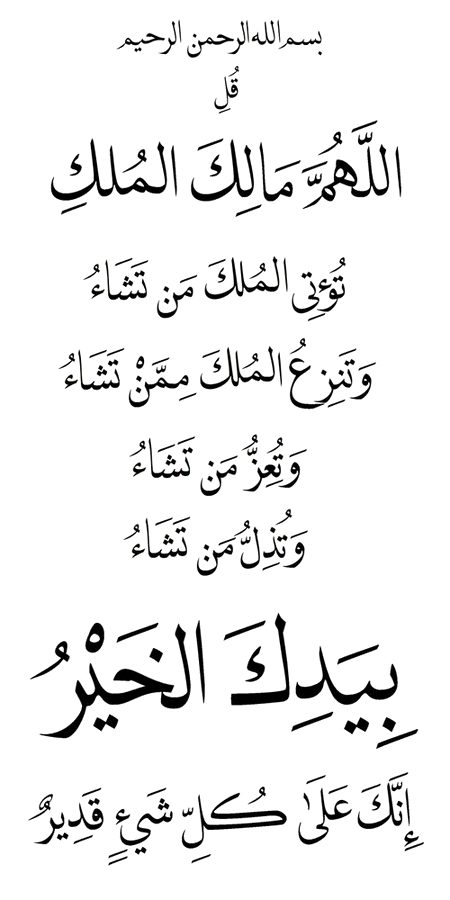 بسم الله الرحمن الرحيم
قُلِ
اللَّهُمَّ مَالِكَ المُلكِ
تُؤتِي المُلكَ مَن تَشَاءُ
وَتَنزِعُ المُلكَ مِمَّنْ تَشَاءُ
وَتُعِزُّ مَن تَشَاءُ
وَتُذِلُّ مَن تَشَاءُ
بِيَدِكَ الخَيْرُ
إِنَّكَ عَلَىٰ كُلِّ شَيءٍ قَدِيرٌ